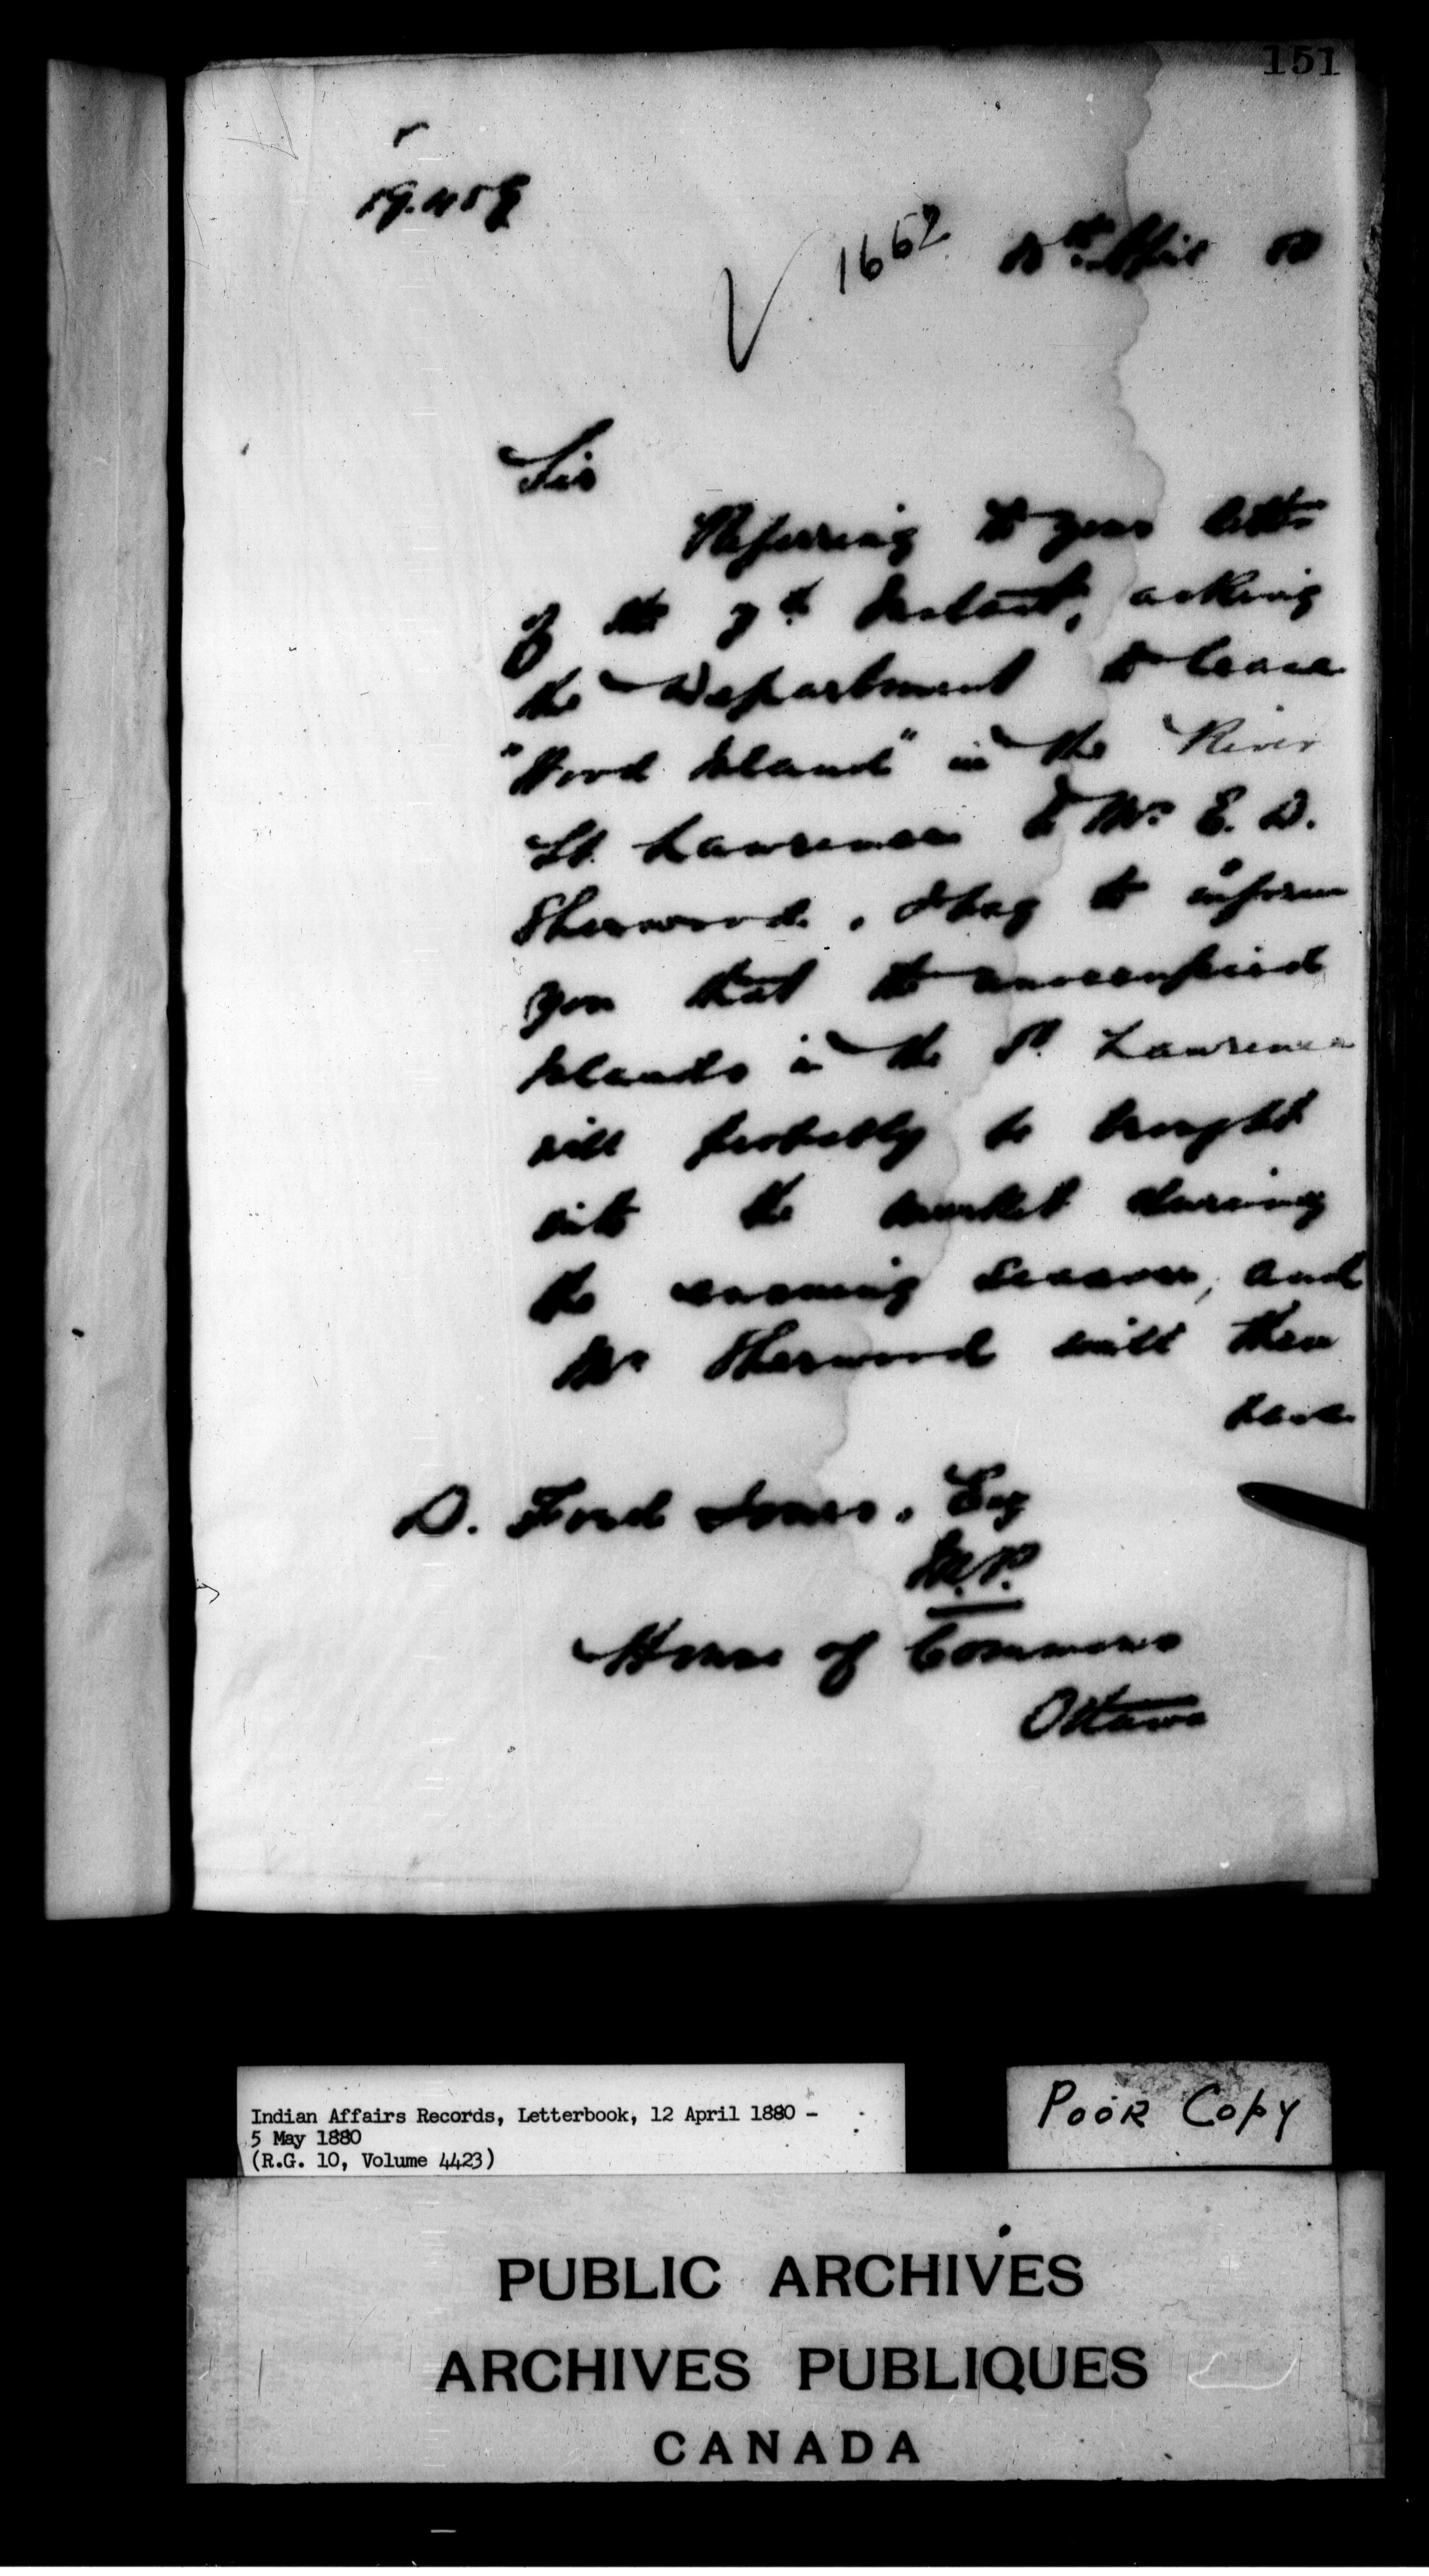 151
19.459
1662 April 80
Sir
Referring to your letter
of the 7th Instant, asking
the Department to lease
"Wood Island" in the River
St. Lawrence to Mr. E. D.
Sherwood, I beg to inform
you that the unoccupied
Islands in the St. Lawrence
will probably be brought
into the market during
the ensuing Season, and
Mr Sherwood will then
have
D. Ford Jones, Esq
M.P.
House of Commons
Ottawa
Indian Affairs Records, Letterbook, 12 April 1880 -
5 May 1880
(R.G. 10, Volume 4423)
POOR COPY
PUBLIC ARCHIVES
ARCHIVES PUBLIQUES
CANADA